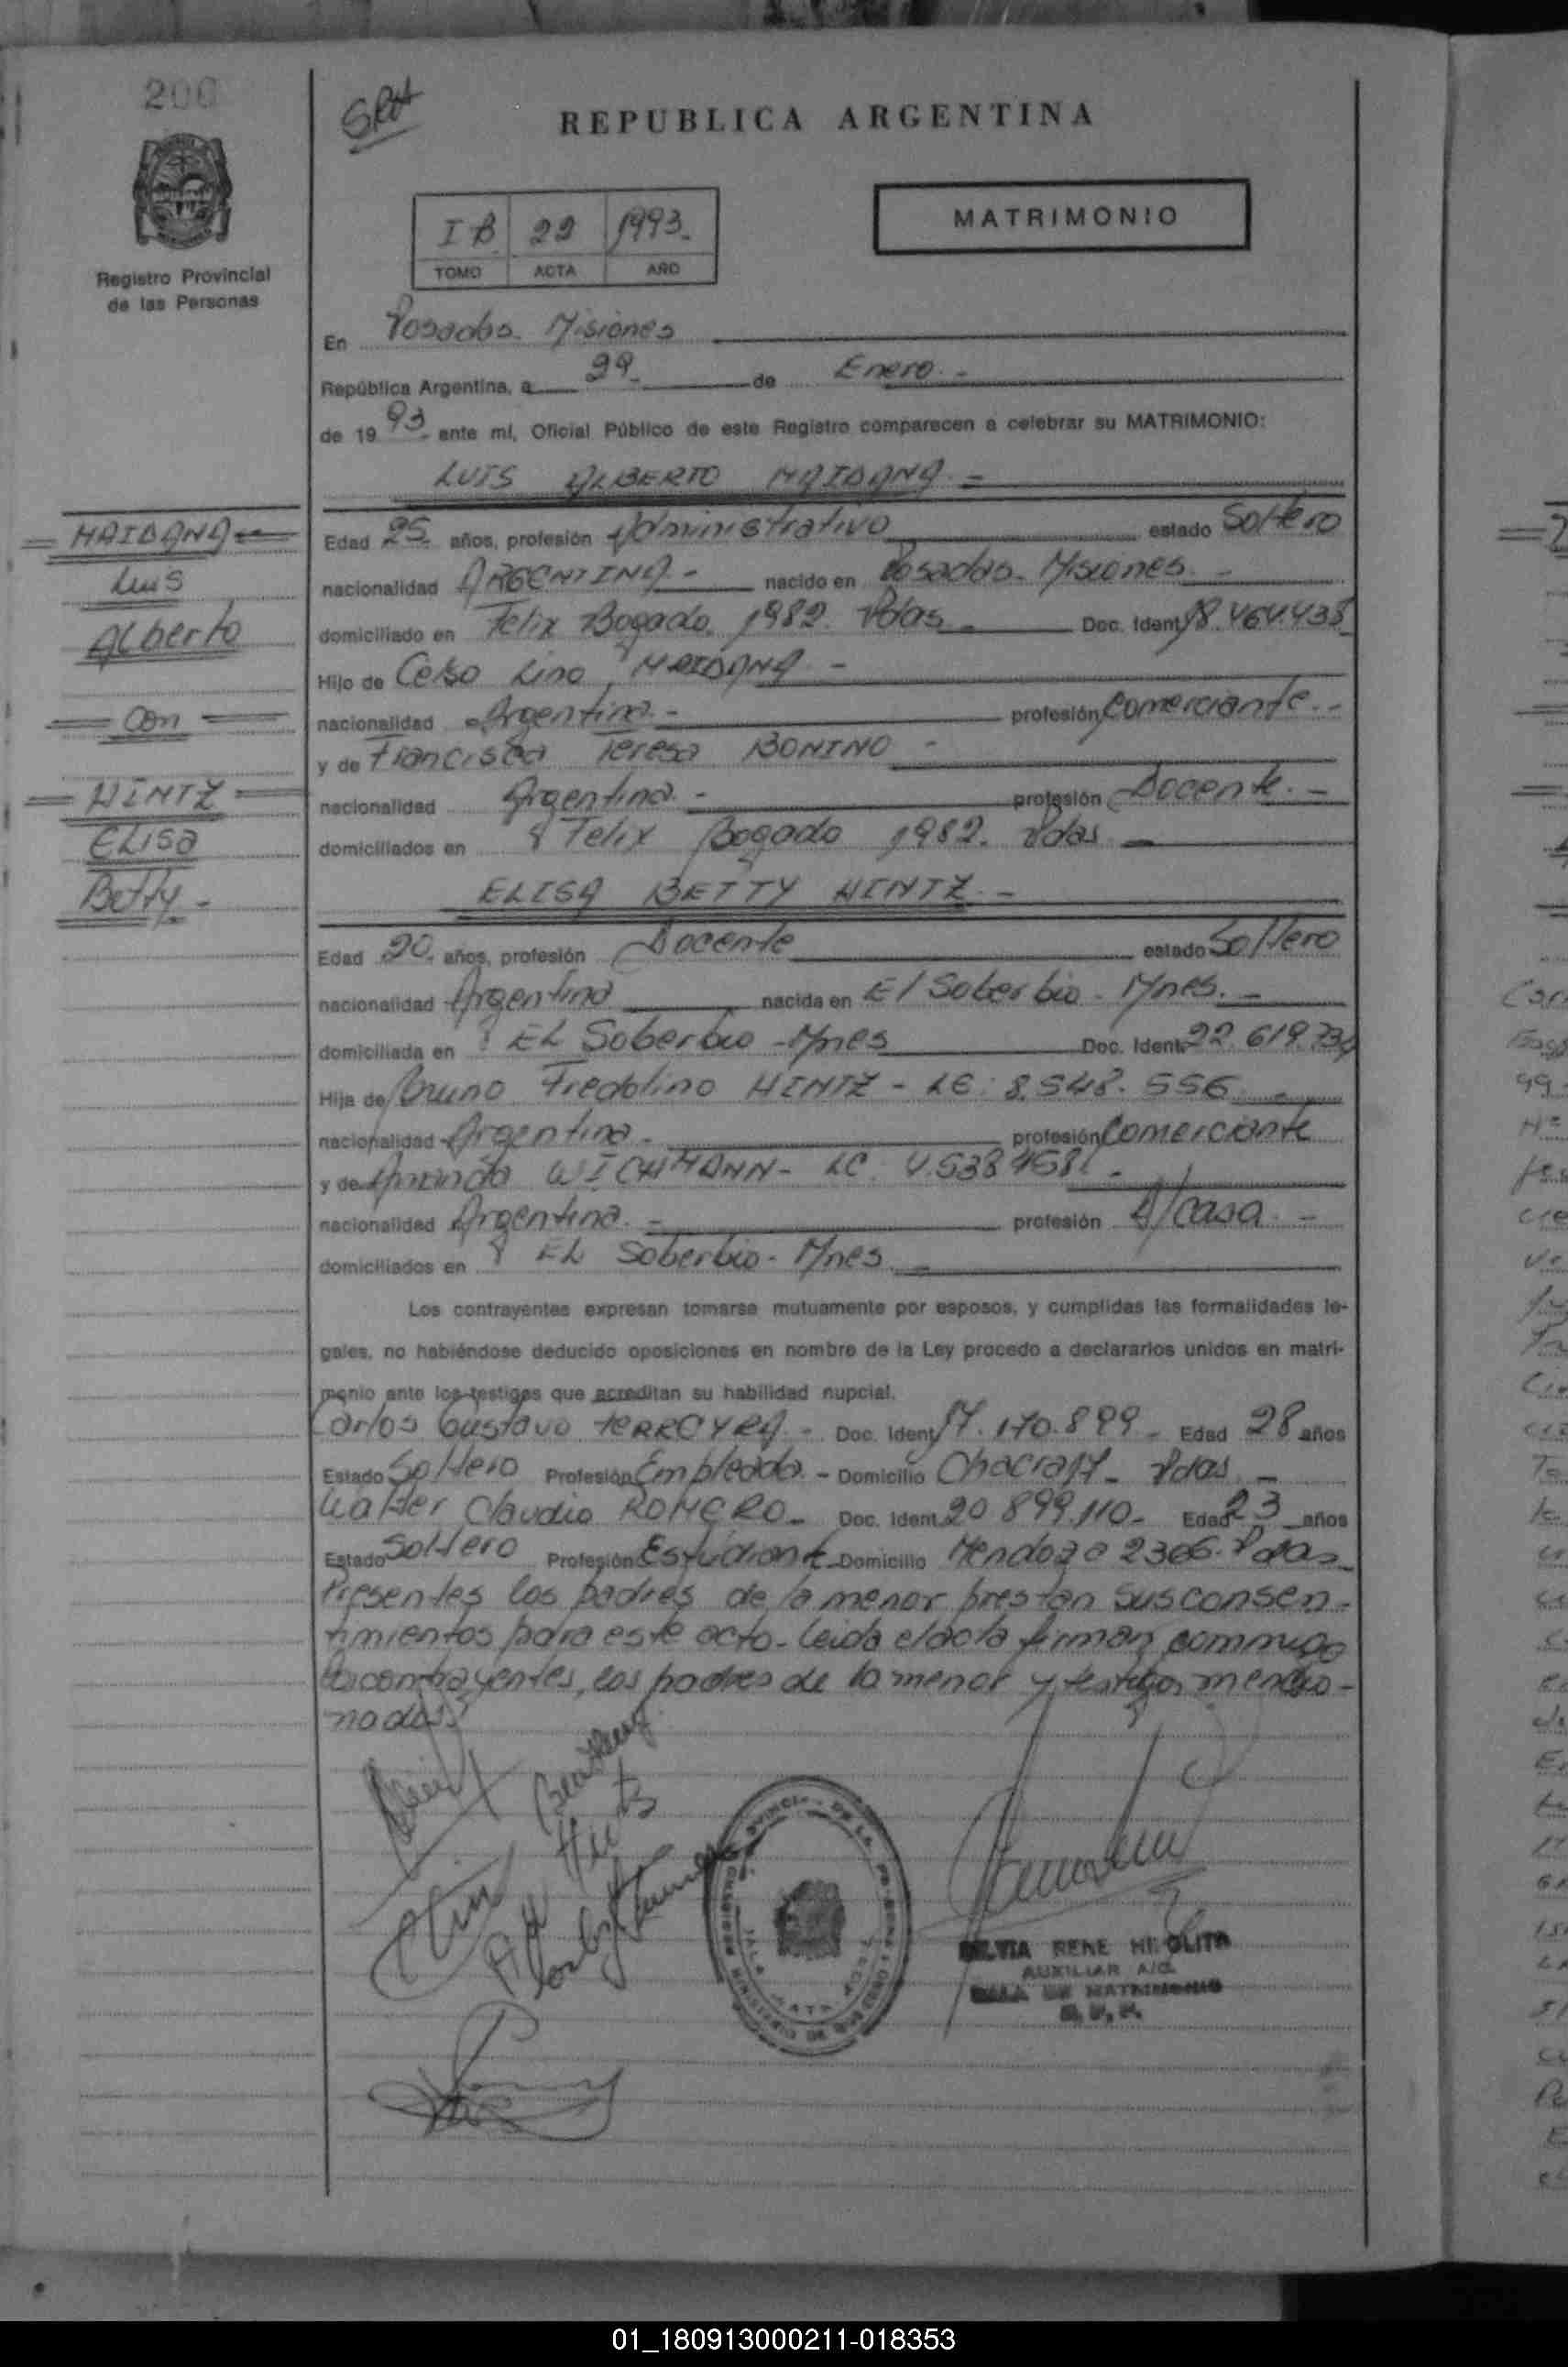 200
SRH
REPUBLICA ARGENTINA
I B 22 1993.
TOMO ACTA AÑO
MATRIMONIO
Registro Provincial
de las Personas
En Posadas. Misiones
República Argentina, a 29 de Enero.-
de 1993 ante mí, Oficial Público de este Registro comparecen a celebrar su MATRIMONIO:
LUIS ALBERTO MAIDANA.=
Edad 25 años, profesión Administrativo estado Soltero
nacionalidad ARGENTINA- nacido en Posadas. Misiones.-
domiciliado en Felix Bogado. 1982. Pdas Doc. Ident. 18.464.435
Hijo de Celso Lino MAIDANA -
nacionalidad Argentina.- profesión Comerciante.-
y de Francisca Teresa BONINO -
nacionalidad Argentina.- profesión Docente.-
domiciliados en Felix Bogado 1982. Pdas
ELISA BETTY HINTZ.-
Edad 20. años, profesión Docente estado Soltero
nacionalidad Argentina nacida en El Soberbio - Mnes.-
domiciliada en EL Soberbio - Mnes Doc. Ident. 22.619.734
Hija de Bruno Fredolino HINTZ - LE: 8.548.556
nacionalidad Argentina.- profesión Comerciante
y de WICHMANN- LC.
nacionalidad Argentina.- profesión A/casa.-
domiciliados en EL Soberbio - Mnes.
Los contrayentes expresan tomarse mutuamente por esposos, y cumplidas las formalidades le-
gales, no habiéndose deducido oposiciones en nombre de la Ley procedo a declararlos unidos en matri-
monio ante los testigos que acreditan su habilidad nupcial.
Carlos Gustavo FERREYRA.- Doc. Ident. 17.170.899- Edad 28 años
Estado Soltero Profesión Empleado.- Domicilio Chacra 17- Pdas
Walter Claudio ROMERO- Doc. Ident. 20.899.110- Edad 23 años
Estado Soltero Profesión Estudiante Domicilio Mendoza 2306. Pdas
Presentes los padres de la menor prestan sus consen-
timientos para este acto- Leida el acta firman conmigo
los contrayentes, los padres de la menor y testigos mencio-
nados
MAIDANA
Luis
Alberto
Con
HINTZ
ELisa
Betty-
SILVIA RENE HIPOLITO
AUXILIAR A/C.
SALA DE MATRIMONIO
01_180913000211-018353